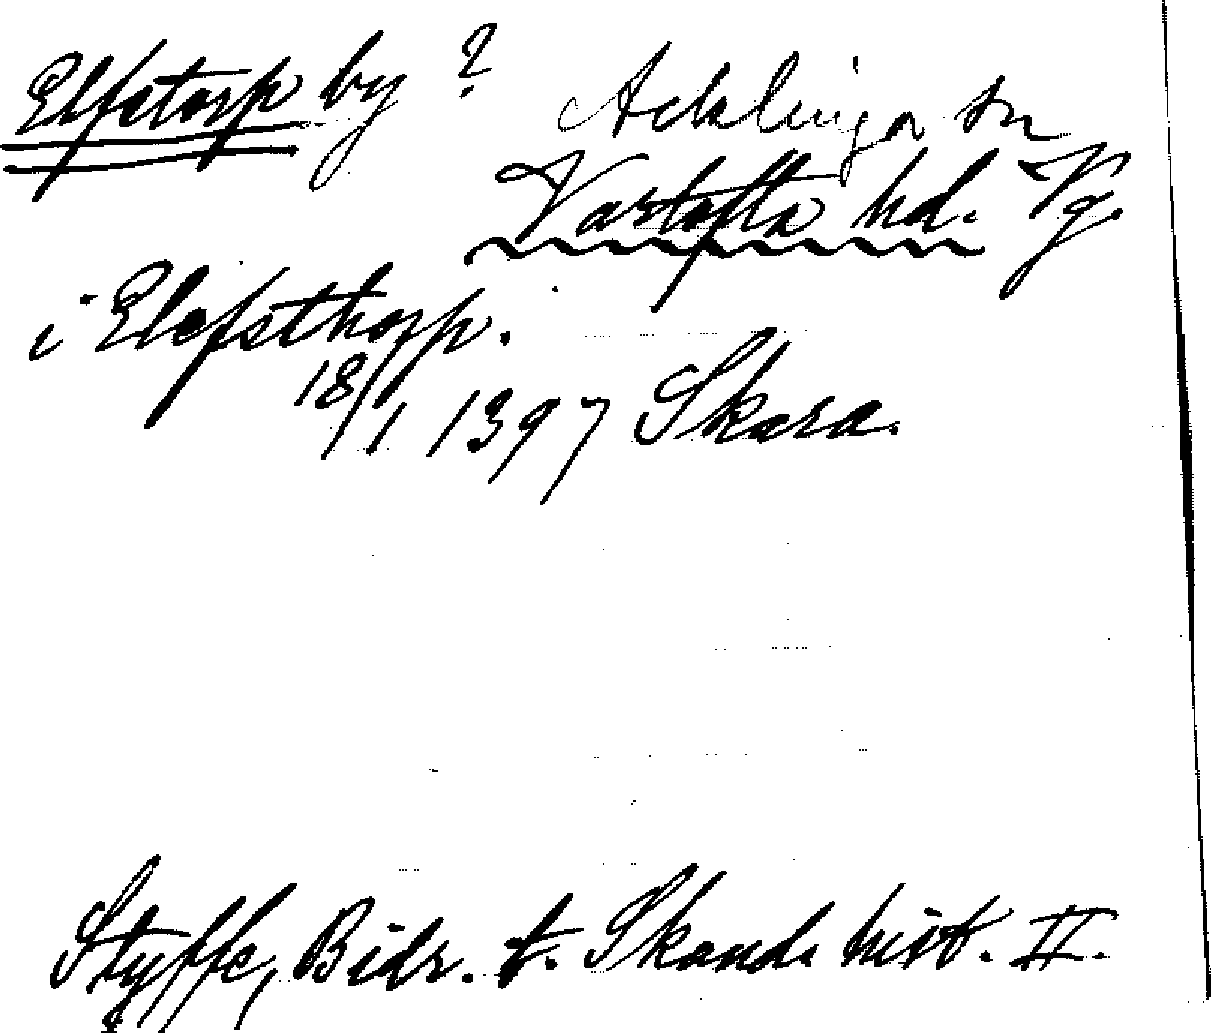 Elfstorp by ? Acklinga sn
Vartofta hd. Vg.
i Elefsthorp.
18/1 1397 Skara.
Styffe, Bidr. t. Skand. hist. II.